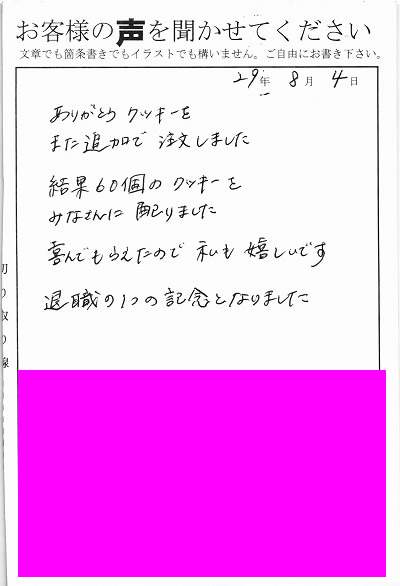 お客様の声を聞かせてください
文章でも箇条書きでもイラストでも構いません。ご自由にお書き下さい。
29年 8月 4日
ありがとう クッキーを
また追加で 注文しました
結果60個の クッキーを
みなさんに 配りました
喜んでもらえたので 私も 嬉しいです
退職の1つの記念となりました
切り取り線